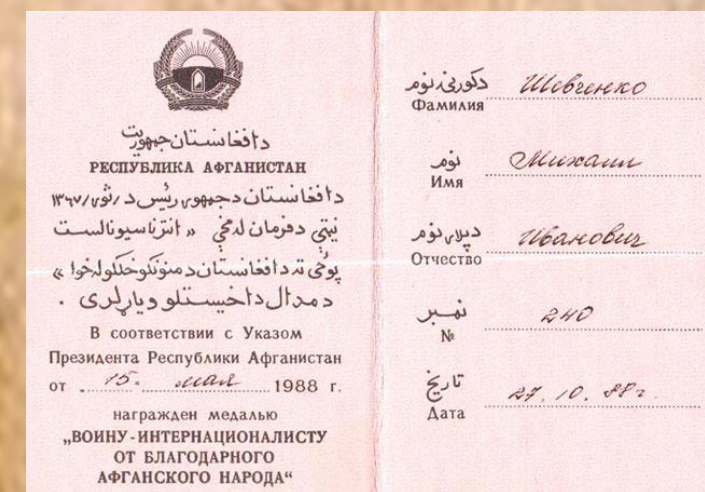 د افغانستان جمهوریت
РЕСПУБЛИКА АФГАНИСТАН
د افغانستان د جمهوری رئیس د / ثور / ۱۳۶۷
نیټې د فرمان له مخې « انترناسیونالست
پوځی ته د افغانستان د منونکو خلکو له خوا »
د مدال د اخیستلو ویاړ لری .
В соответствии с Указом
Президента Республики Афганистан
от 15. мая 1988 г.
награжден медалью
„ВОИНУ-ИНТЕРНАЦИОНАЛИСТУ
ОТ БЛАГОДАРНОГО
АФГАНСКОГО НАРОДА“
د کورنۍ نوم
Фамилия Шевченко
نوم
Имя Михаил
د پلار نوم
Отчество Иванович
نمبر
№ 240
تاریخ
Дата 27.10.88г.